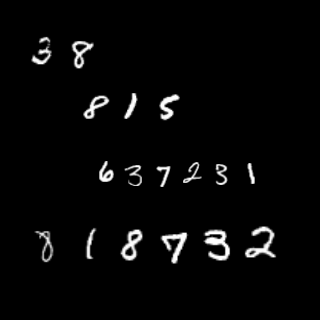 3 8
8 1 5
6 3 7 2 3 1
8 1 8 7 3 2